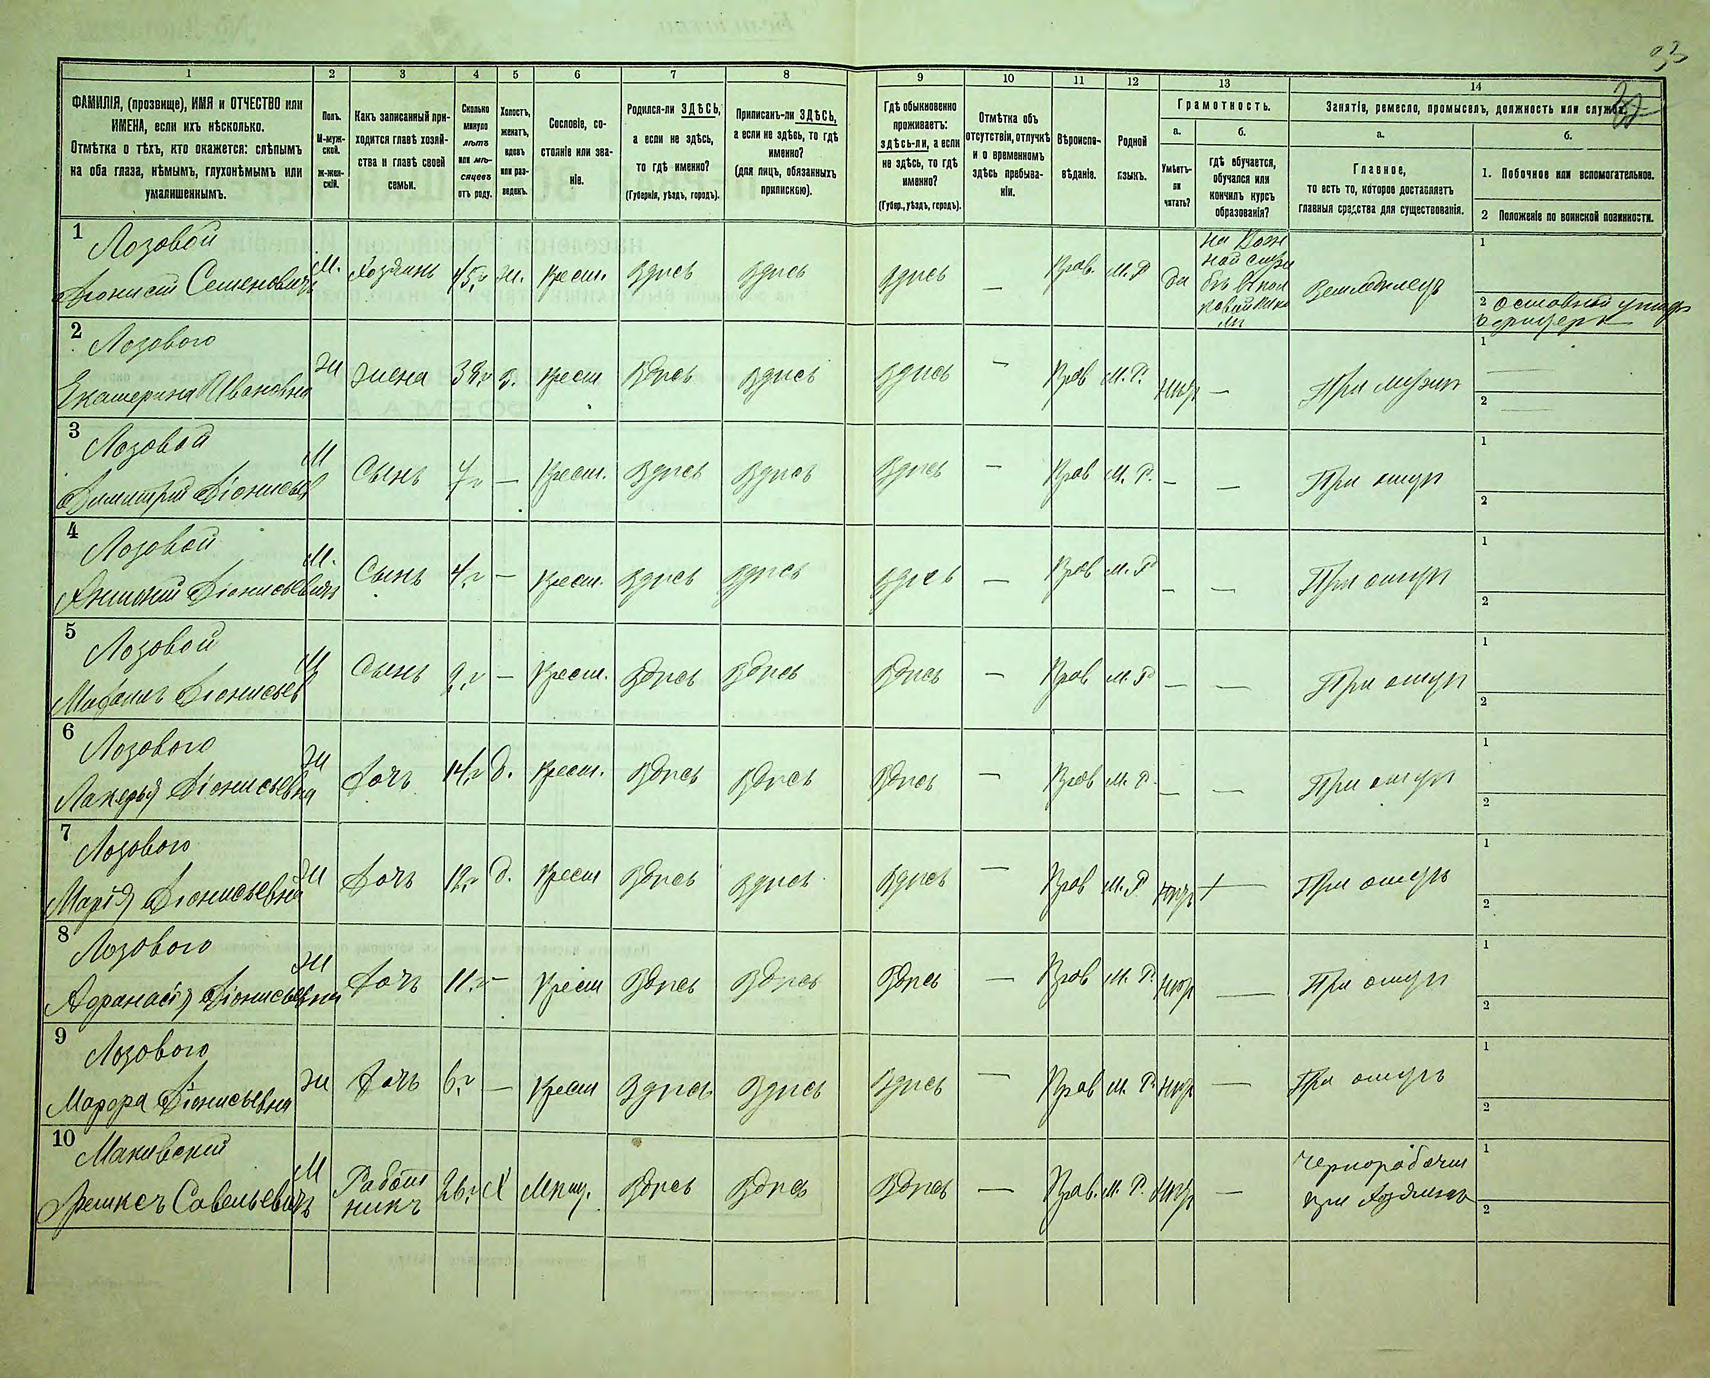 1 2 3 4 5 6 7 8 9 10 11 12 13 14
ФАМИЛІЯ, (прозвище), ИМЯ и ОТЧЕСТВО или
ИМЕНА, если ихъ нѣсколько.
Отмѣтка о тѣхъ, кто окажется: слѣпымъ
на оба глаза, нѣмымъ, глухонѣмымъ или
умалишеннымъ.
Полъ.
М-муж-
ской.
ж-жен-
скій.
Какъ записанный при-
ходится главѣ хозяй-
ства и главѣ своей
семьи.
Сколько
минуло
лѣтъ
или мѣ-
сяцевъ
отъ роду.
Холостъ,
женатъ,
вдовъ
или раз-
веденъ.
Сословіе, со-
стояніе или зва-
ніе.
Родился-ли ЗДѢСЬ,
а если не здѣсь,
то гдѣ именно?
(Губернія, уѣздъ, городъ).
Приписанъ-ли ЗДѢСЬ,
а если не здѣсь, то гдѣ
именно?
(для лицъ, обязанныхъ
припискою).
Гдѣ обыкновенно
проживаетъ:
здѣсь-ли, а если
не здѣсь, то гдѣ
именно?
(Губер., уѣздъ, городъ).
Отмѣтка объ
отсутствіи, отлучкѣ
и о временномъ
здѣсь пребыва-
ніи.
Вѣроиспо-
вѣданіе.
Родной
языкъ.
Грамотность.
а.
Умѣетъ-
ли
читать?
б.
гдѣ обучается,
обучался или
кончилъ курсъ
образованія?
Занятія, ремесло, промыселъ, должность или служба.
а.
Главное,
то есть то, которое доставляетъ
главныя средства для существованія.
б.
1. Побочное или вспомогательное.
2 Положеніе по воинской повинности.
1 Лозовой
Діонисій Семеновичъ М. Хозяинъ 45 г ж. крест. Здѣсь Здѣсь Здѣсь — Прав. М. Р да Земледѣлецъ
1
2
2 Лозового
Екатерина Ивановна Ж жена г. Крест Здѣсь Здѣсь Здѣсь — Прав М. Р. нѣтъ — При мужи
1
2
3 Лозовой
Димитрій Діонисьев М Сынъ 7 г — Крест. Здѣсь Здѣсь Здѣсь — Прав М. Р. — — При отцѣ
1
2
4 Лозовой
Діонисьевичъ М. Сынъ 4 г — Крест. Здѣсь Здѣсь Здѣсь — Прав М. Р — — При отцѣ
1
2
5 Лозовой
Діонисьев М Сынъ 2 г — Крест. Здѣсь Здѣсь Здѣсь — Прав М. Р — — При отцѣ
1
2
6 Лозового
Лукерья Діонисьевна Ж Дочь 14 г д. Крест. Здѣсь Здѣсь Здѣсь — Прав М. Р. — — При отцѣ
1
2
7 Лозового
Марія Діонисьевна Ж Дочь 12 г д. Крест Здѣсь Здѣсь Здѣсь — Прав М. Р нѣтъ — При отцѣ
1
2
8 Лозового
Афанасія Діонисьевна Ж Дочь 11 г — Крест Здѣсь Здѣсь Здѣсь — Прав М. Р. нѣтъ — При отцѣ
1
2
9 Лозового
Діонисьевна Ж Дочь 6 г — Крест Здѣсь Здѣсь Здѣсь — Прав М. Р. нѣтъ — При отцѣ
1
2
10 Макивский
Савельевичъ М Работникъ 26 г Х Мѣщ. Здѣсь Здѣсь Здѣсь — Прав. М. Р. нѣтъ — Чернорабочий
при Хозяинѣ
1
2